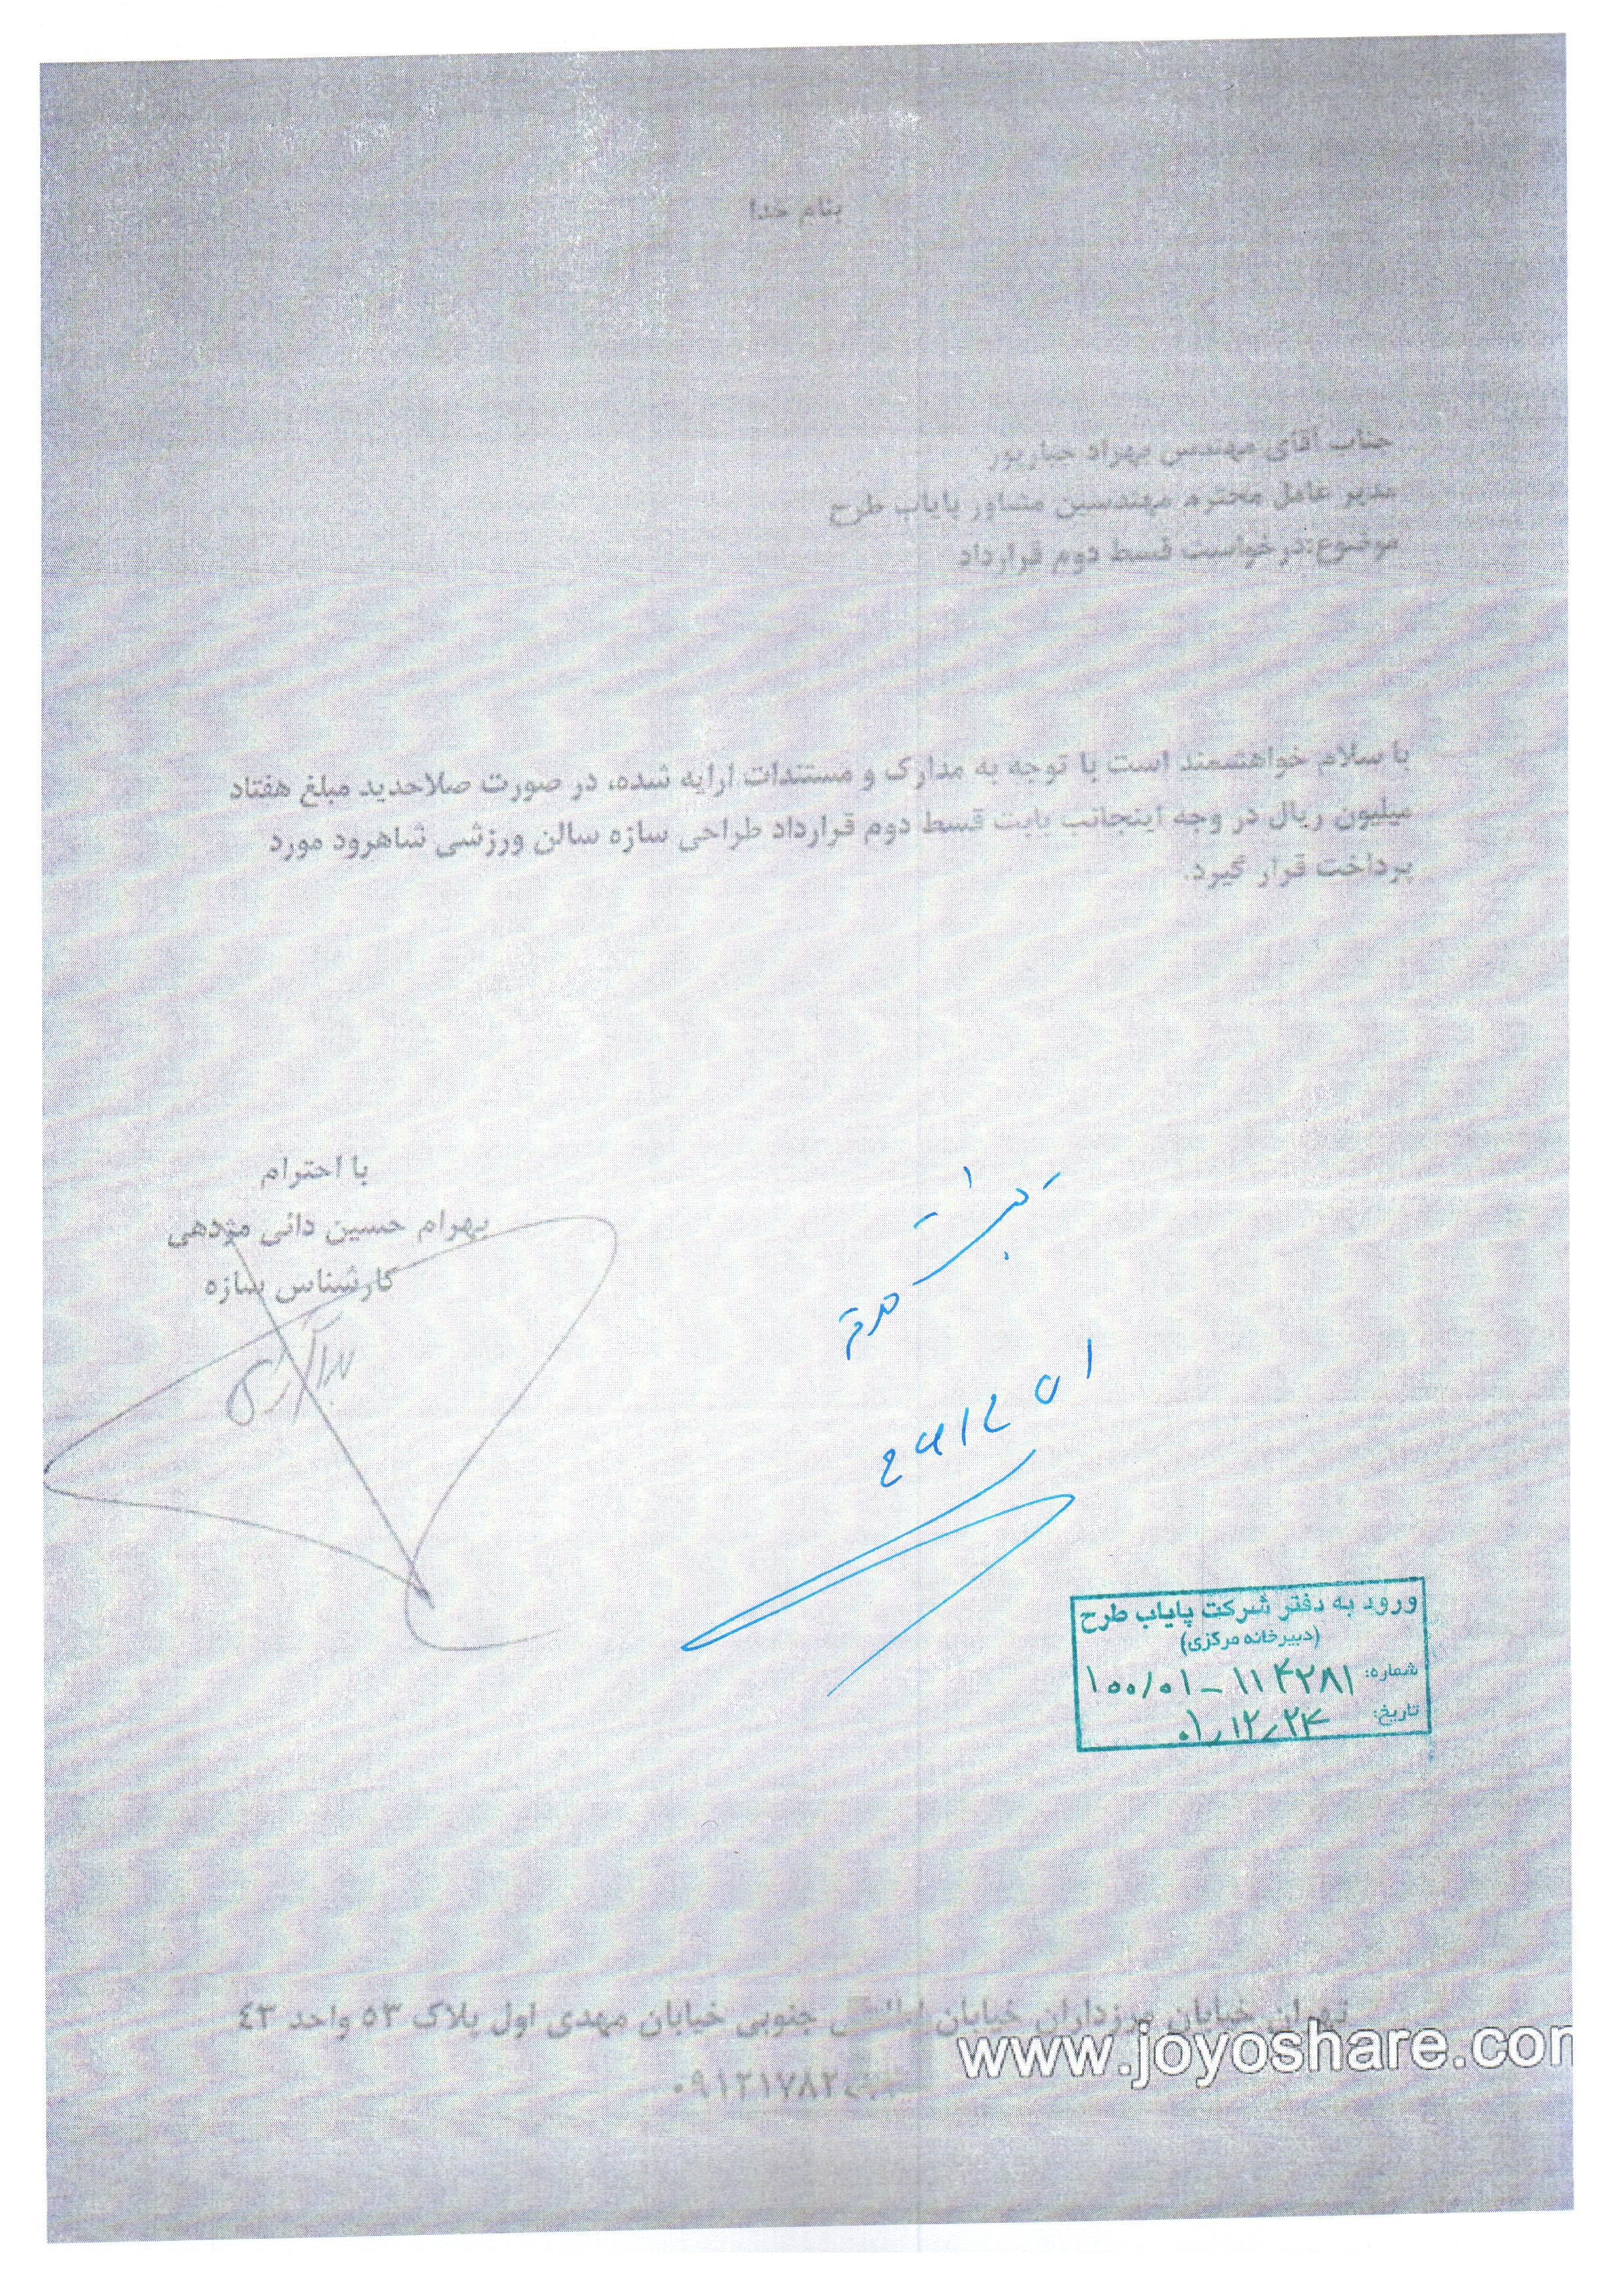 بنام خدا
جناب آقای مهندس بهراد جبارپور
مدیر عامل محترم مهندسین مشاور پایاب طرح
موضوع:درخواست قسط دوم قرارداد
با سلام خواهشمند است با توجه به مدارک و مستندات ارایه شده، در صورت صلاحدید مبلغ هفتاد
میلیون ریال در وجه اینجانب بابت قسط دوم قرارداد طراحی سازه سالن ورزشی شاهرود مورد
پرداخت قرار گیرد.
با احترام
بهرام حسین دائی مژدهی
کارشناس سازه
ورود به دفتر شرکت پایاب طرح
(دبیرخانه مرکزی)
شماره: ۱۰۰/۰۱-۱۱۴۲۸۱
تاریخ: ۰۱,۱۲,۲۴
تهران خیابان مرزداران خیابان جنوبی خیابان مهدی اول پلاک ۵۳ واحد ۴۳
www.joyoshare.com
۰۹۱۲۱۷۸۲